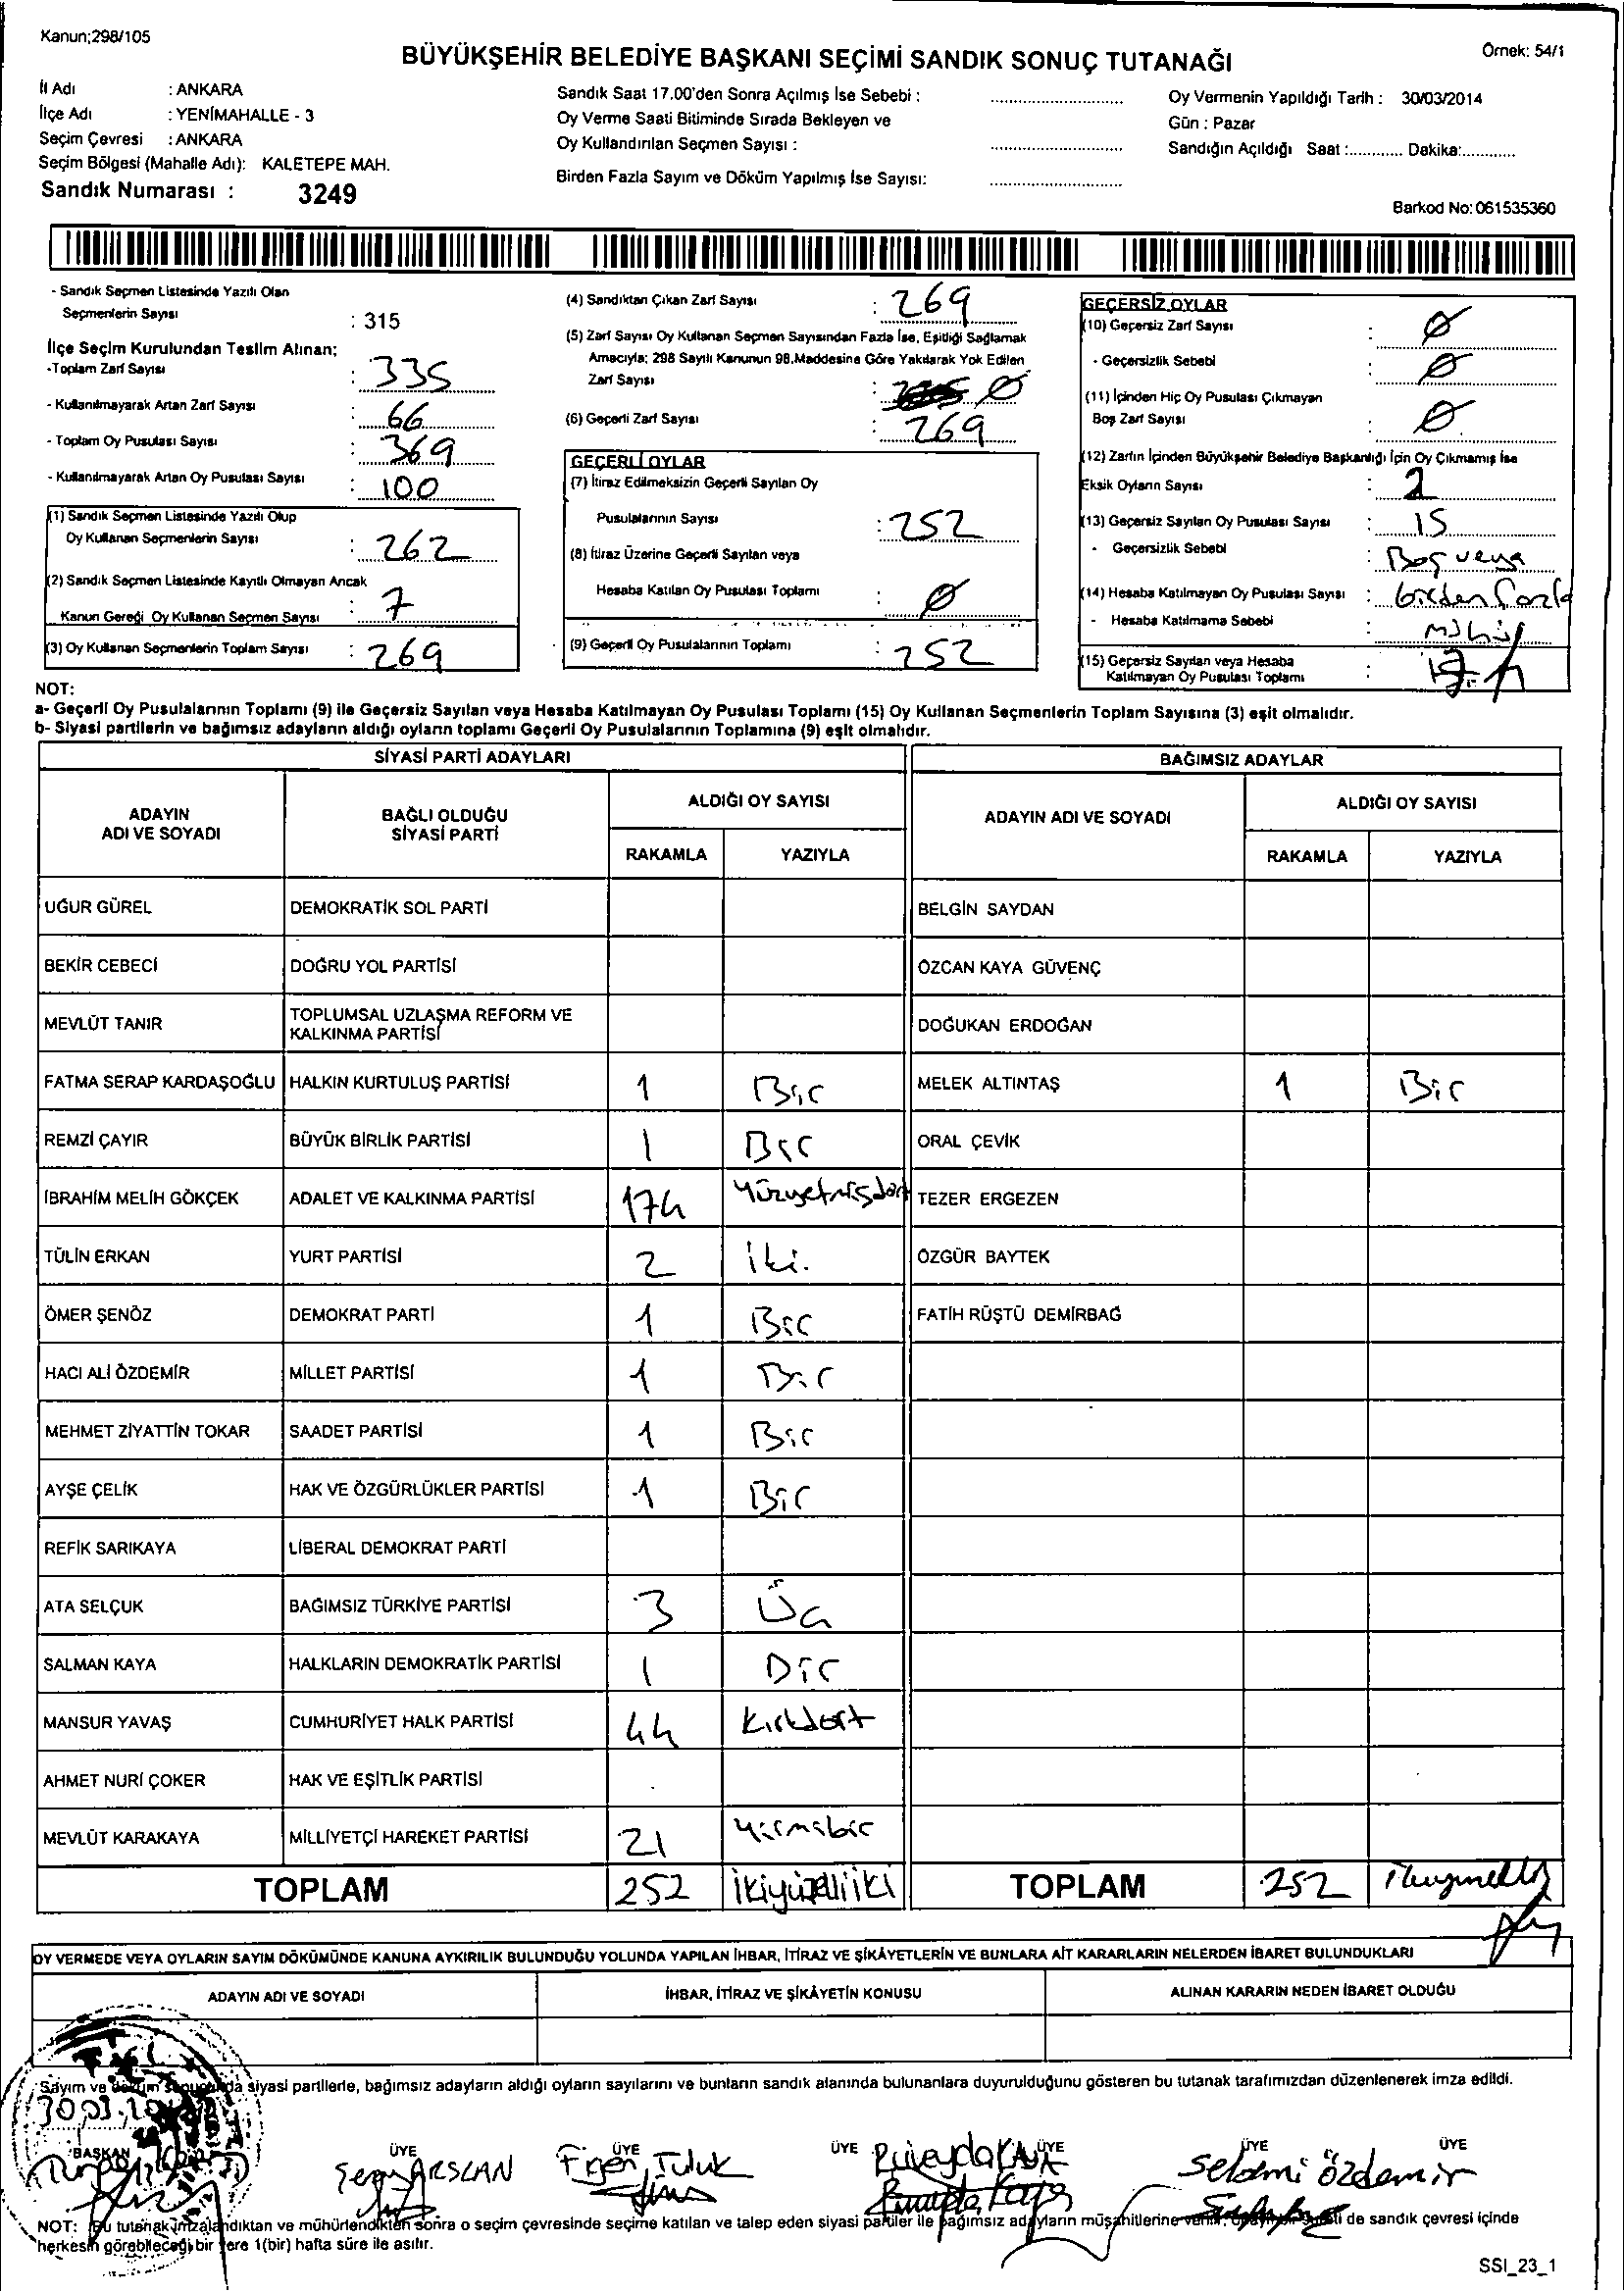 Kanun;298/105
BÜYÜKŞEHİR BELEDİYE BAŞKANI SEÇİMİ SANDIK SONUÇ TUTANAĞI
Örnek: 54/1
İl Adı : ANKARA
İlçe Adı : YENİMAHALLE - 3
Seçim Çevresi : ANKARA
Seçim Bölgesi (Mahalle Adı): KALETEPE MAH.
Sandık Numarası : 3249
Sandık Saat 17.00'den Sonra Açılmış İse Sebebi :
Oy Verme Saati Bitiminde Sırada Bekleyen ve
Oy Kullandırılan Seçmen Sayısı :
Birden Fazla Sayım ve Döküm Yapılmış İse Sayısı:
Oy Vermenin Yapıldığı Tarih : 30/03/2014
Gün : Pazar
Sandığın Açıldığı Saat :............ Dakika:............
Barkod No: 061535360
- Sandık Seçmen Listesinde Yazılı Olan
Seçmenlerin Sayısı : 315
İlçe Seçim Kurulundan Teslim Alınan:
-Toplam Zarf Sayısı : 335
- Kullanılmayarak Artan Zarf Sayısı : 66
- Toplam Oy Pusulası Sayısı : 369
- Kullanılmayarak Artan Oy Pusulası Sayısı : 100
(1) Sandık Seçmen Listesinde Yazılı Olup
Oy Kullanan Seçmenlerin Sayısı : 262
(2) Sandık Seçmen Listesinde Kayıtlı Olmayan Ancak
Kanun Gereği Oy Kullanan Seçmen Sayısı : 7
(3) Oy Kullanan Seçmenlerin Toplam Sayısı : 269
(4) Sandıktan Çıkan Zarf Sayısı : 269
(5) Zarf Sayısı Oy Kullanan Seçmen Sayısından Fazla İse, Eşitliği Sağlamak
Amacıyla; 298 Sayılı Kanunun 98.Maddesine Göre Yakılarak Yok Edilen
Zarf Sayısı : Ø
(6) Geçerli Zarf Sayısı : 269
GEÇERLİ OYLAR
(7) İtiraz Edilmeksizin Geçerli Sayılan Oy
Pusulalarının Sayısı : 252
(8) İtiraz Üzerine Geçerli Sayılan veya
Hesaba Katılan Oy Pusulası Toplamı : Ø
(9) Geçerli Oy Pusulalarının Toplamı : 252
GEÇERSİZ OYLAR
(10) Geçersiz Zarf Sayısı : Ø
- Geçersizlik Sebebi : Ø
(11) İçinden Hiç Oy Pusulası Çıkmayan
Boş Zarf Sayısı : Ø
(12) Zarfın İçinden Büyükşehir Belediye Başkanlığı İçin Oy Çıkmamış İse
Eksik Oyların Sayısı : 2
(13) Geçersiz Sayılan Oy Pusulası Sayısı : 15
- Geçersizlik Sebebi : Boş veya
(14) Hesaba Katılmayan Oy Pusulası Sayısı : birden fazla
- Hesaba Katılmama Sebebi : mühür
(15) Geçersiz Sayılan veya Hesaba
Katılmayan Oy Pusulası Toplamı : 17
NOT:
a- Geçerli Oy Pusulalarının Toplamı (9) ile Geçersiz Sayılan veya Hesaba Katılmayan Oy Pusulası Toplamı (15) Oy Kullanan Seçmenlerin Toplam Sayısına (3) eşit olmalıdır.
b- Siyasi partilerin ve bağımsız adayların aldığı oyların toplamı Geçerli Oy Pusulalarının Toplamına (9) eşit olmalıdır.
SİYASİ PARTİ ADAYLARI BAĞIMSIZ ADAYLAR
ADAYIN ADI VE SOYADI BAĞLI OLDUĞU SİYASİ PARTİ ALDIĞI OY SAYISI ADAYIN ADI VE SOYADI ALDIĞI OY SAYISI
RAKAMLA YAZIYLA RAKAMLA YAZIYLA
UĞUR GÜREL DEMOKRATİK SOL PARTİ BELGİN SAYDAN
BEKİR CEBECİ DOĞRU YOL PARTİSİ ÖZCAN KAYA GÜVENÇ
MEVLÜT TANIR TOPLUMSAL UZLAŞMA REFORM VE KALKINMA PARTİSİ DOĞUKAN ERDOĞAN
FATMA SERAP KARDAŞOĞLU HALKIN KURTULUŞ PARTİSİ 1 Bir MELEK ALTINTAŞ 1 Bir
REMZİ ÇAYIR BÜYÜK BİRLİK PARTİSİ 1 Bir ORAL ÇEVİK
İBRAHİM MELİH GÖKÇEK ADALET VE KALKINMA PARTİSİ 174 Yüzyetmişdört TEZER ERGEZEN
TÜLİN ERKAN YURT PARTİSİ 2 iki. ÖZGÜR BAYTEK
ÖMER ŞENÖZ DEMOKRAT PARTİ 1 Bir FATİH RÜŞTÜ DEMİRBAĞ
HACI ALİ ÖZDEMİR MİLLET PARTİSİ 1 Bir
MEHMET ZİYATTİN TOKAR SAADET PARTİSİ 1 Bir
AYŞE ÇELİK HAK VE ÖZGÜRLÜKLER PARTİSİ 1 Bir
REFİK SARIKAYA LİBERAL DEMOKRAT PARTİ
ATA SELÇUK BAĞIMSIZ TÜRKİYE PARTİSİ 3 Üç
SALMAN KAYA HALKLARIN DEMOKRATİK PARTİSİ 1 Bir
MANSUR YAVAŞ CUMHURİYET HALK PARTİSİ 44 Kırkdört
AHMET NURİ ÇOKER HAK VE EŞİTLİK PARTİSİ
MEVLÜT KARAKAYA MİLLİYETÇİ HAREKET PARTİSİ 21 Yirmibir
TOPLAM 252 ikiyüzelliiki TOPLAM 252
OY VERMEDE VEYA OYLARIN SAYIM DÖKÜMÜNDE KANUNA AYKIRILIK BULUNDUĞU YOLUNDA YAPILAN İHBAR, İTİRAZ VE ŞİKÂYETLERİN VE BUNLARA AİT KARARLARIN NELERDEN İBARET BULUNDUKLARI
ADAYIN ADI VE SOYADI İHBAR, İTİRAZ VE ŞİKÂYETİN KONUSU ALINAN KARARIN NEDEN İBARET OLDUĞU
Sayım ve döküm sonucunda siyasi partilerle, bağımsız adayların aldığı oyların sayılarını ve bunların sandık alanında bulunanlara duyurulduğunu gösteren bu tutanak tarafımızdan düzenlenerek imza edildi.
BAŞKAN ÜYE ÜYE ÜYE ÜYE ÜYE ÜYE
ARSLAN Tuluk Rüveyda KAYA Selami Özdemir
NOT: Bu tutanak imzalandıktan ve mühürlendikten sonra o seçim çevresinde seçime katılan ve talep eden siyasi partiler ile bağımsız adayların müşahitlerine de sandık çevresi içinde
herkesin görebileceği bir yere 1(bir) hafta süre ile asılır.
SSI_23_1